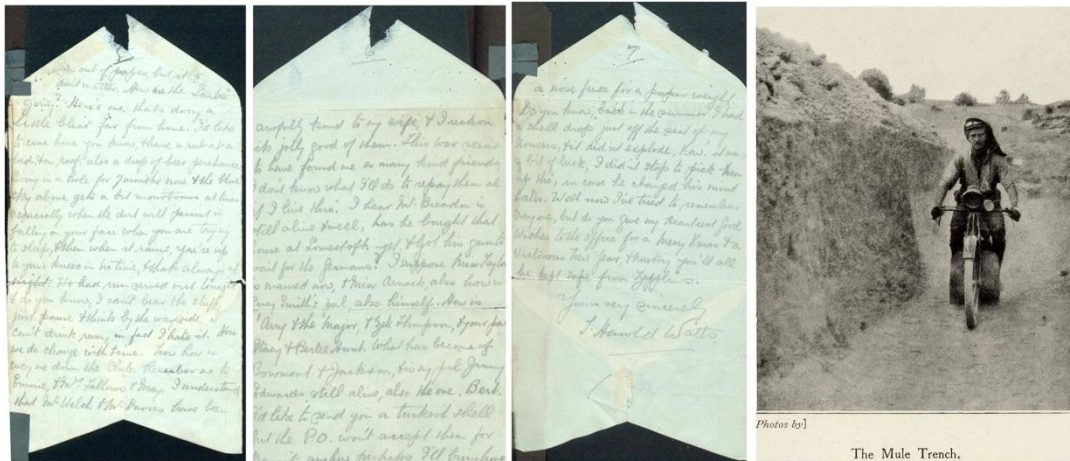 out of paper, but it
don't matter. How are the
going? Here's one that's doing a
little bleat far from home. I'd like
to come home you know, & have a rest at a
bed, & a roof, also a drop of beer perchance
living in a hole for 7 months now & the blue
sky above gets a bit monotonous at times
especially when the dirt will persist in
falling on your face when you are trying
to sleep, & then when it rains, you're up
to your knees in no time, & that's always at
night. We had rum served out
& do you know, I can't bear the stuff,
just pause & think by the wayside, I
can't drink rum, in fact I hate it. How
we do change with time. how is
everyone down the Club. Remember me to
& Fellows & May. I understand
that Mr Welsh & Mr Davies have been
6
awfully kind to my wife & I reckon
it's jolly good of them. This war seems
to have found me so many kind friends,
I don't know what I'll do to repay them all
if I live thro'. I hear Mr
still alive & well, has he bought that
house at Lowestoft yet, & got his gun to
wait for the Germans? I suppose Miss Taylor
is married now, & Miss also how is
Percy Smith's pal, also himself. How is
& the Major, & Thompson, & your pal
& Bertie Hunt. What has become of
& Jackson, & is my pal Jimmy
Edwards still alive, also the one. Bert.
I'd like to send you a turkish shell
but the P.O. won't accept them for
perhaps I'll bring home
7
a nose fuse for a paper weight
Do you know, back in the summer I had
a shell drop just off the seat of my
trousers, & it did'nt explode, it was
a bit of luck, I did'nt stop to pick
up tho', in case he changed his mind
later. Well now I've tried to remember
everyone, but do you give my heartiest good
wishes to the office for a merry Xmas & a
victorious New Year, & trusting you'll all
be kept safe from Zepps.
Yours very sincerely
Harold Watts
Photos by]
The Mule Trench.